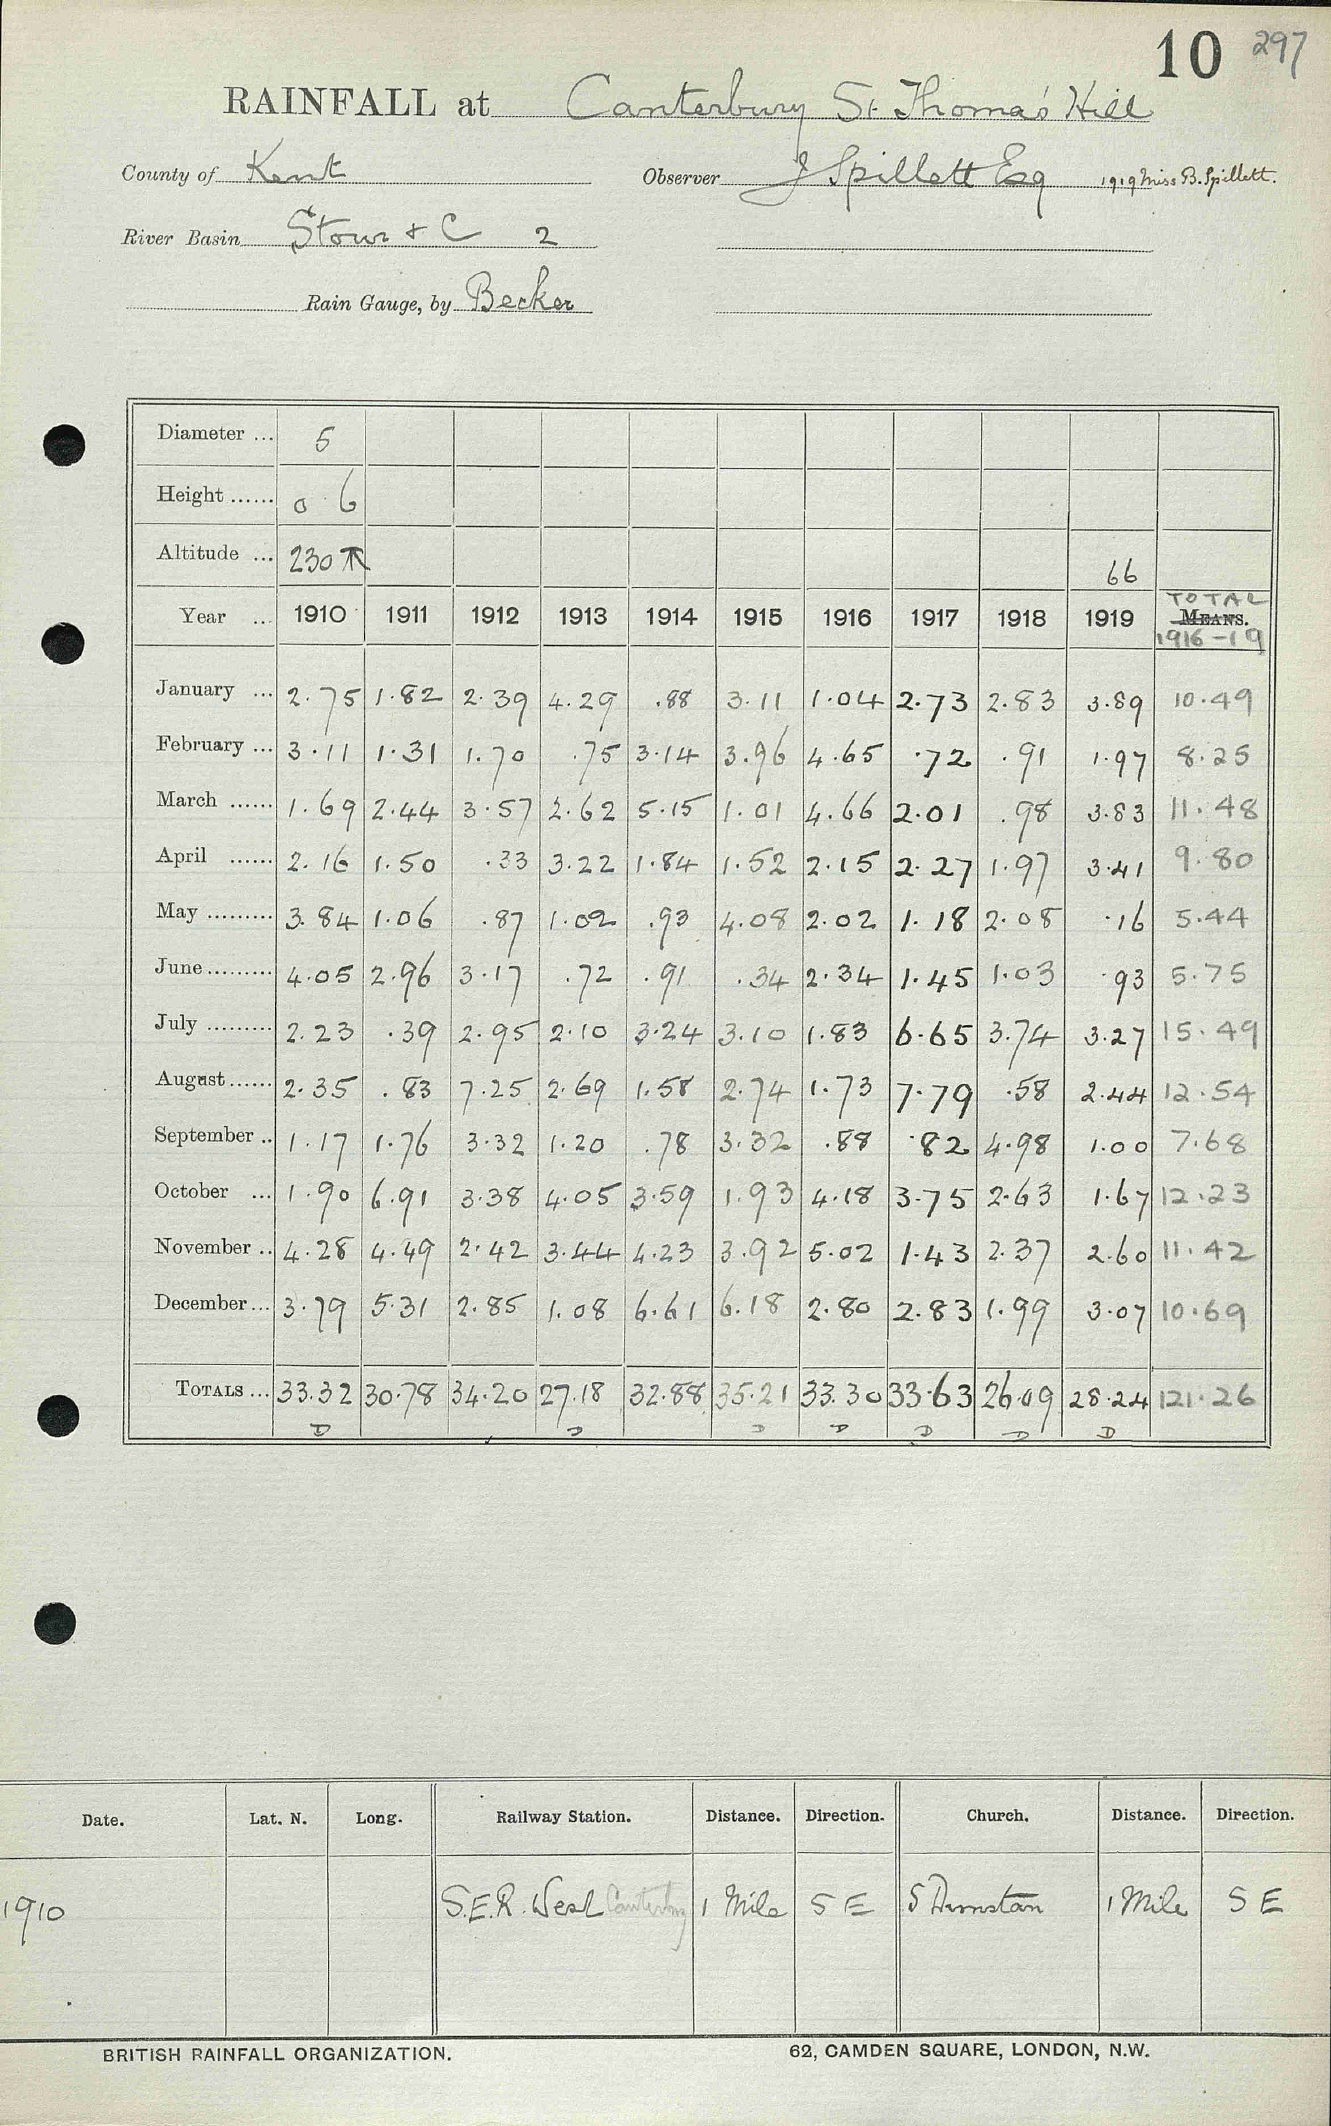 10 297
RAINFALL at Canterbury St Thomas's Hill
County of Kent Observer J Spillett Esq 1919 Miss B. Spillett.
River Basin Stour & C 2
Rain Gauge, by Becker
Diameter ... 5
Height ...... 0 6
Altitude ... 230 ↑ 66
Year ... 1910 1911 1912 1913 1914 1915 1916 1917 1918 1919 TOTAL MEANS. 1916-19
January ... 2.75 1.82 2.39 4.29 .88 3.11 1.04 2.73 2.83 3.89 10.49
February ... 3.11 1.31 1.70 .75 3.14 3.96 4.65 .72 .91 1.97 8.25
March ...... 1.69 2.44 3.57 2.62 5.15 1.01 4.66 2.01 .98 3.83 11.48
April ...... 2.16 1.50 .33 3.22 1.84 1.52 2.15 2.27 1.97 3.41 9.80
May ......... 3.84 1.06 .87 1.02 .93 4.08 2.02 1.18 2.08 .16 5.44
June ......... 4.05 2.96 3.17 .72 .91 .34 2.34 1.45 1.03 .93 5.75
July ......... 2.23 .39 2.95 2.10 3.24 3.10 1.83 6.65 3.74 3.27 15.49
August ...... 2.35 .83 7.25 2.69 1.58 2.74 1.73 7.79 .58 2.44 12.54
September .. 1.17 1.76 3.32 1.20 .78 3.32 .88 .82 4.98 1.00 7.68
October ... 1.90 6.91 3.38 4.05 3.59 1.93 4.18 3.75 2.63 1.67 12.23
November .. 4.28 4.49 2.42 3.44 4.23 3.92 5.02 1.43 2.37 2.60 11.42
December ... 3.79 5.31 2.85 1.08 6.61 6.18 2.80 2.83 1.99 3.07 10.69
TOTALS ... 33.32 30.78 34.20 27.18 32.88 35.21 33.30 33.63 26.09 28.24 121.26
D D D D D D D
Date. Lat. N. Long. Railway Station. Distance. Direction. Church. Distance. Direction.
1910 S.E.R. West Canterbury 1 Mile S E S Dunstan 1 Mile S E
BRITISH RAINFALL ORGANIZATION. 62, CAMDEN SQUARE, LONDON, N.W.